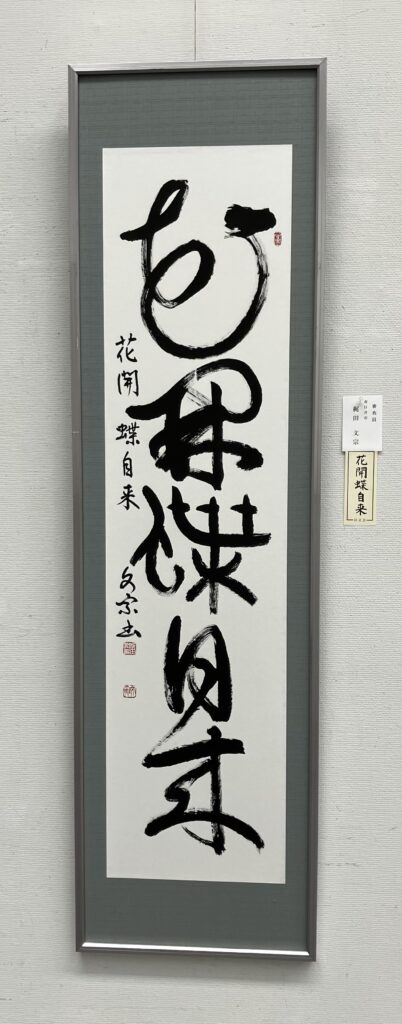 花開蝶自来
花開蝶自来 文宗書
梶田 文宗
花開蝶自来